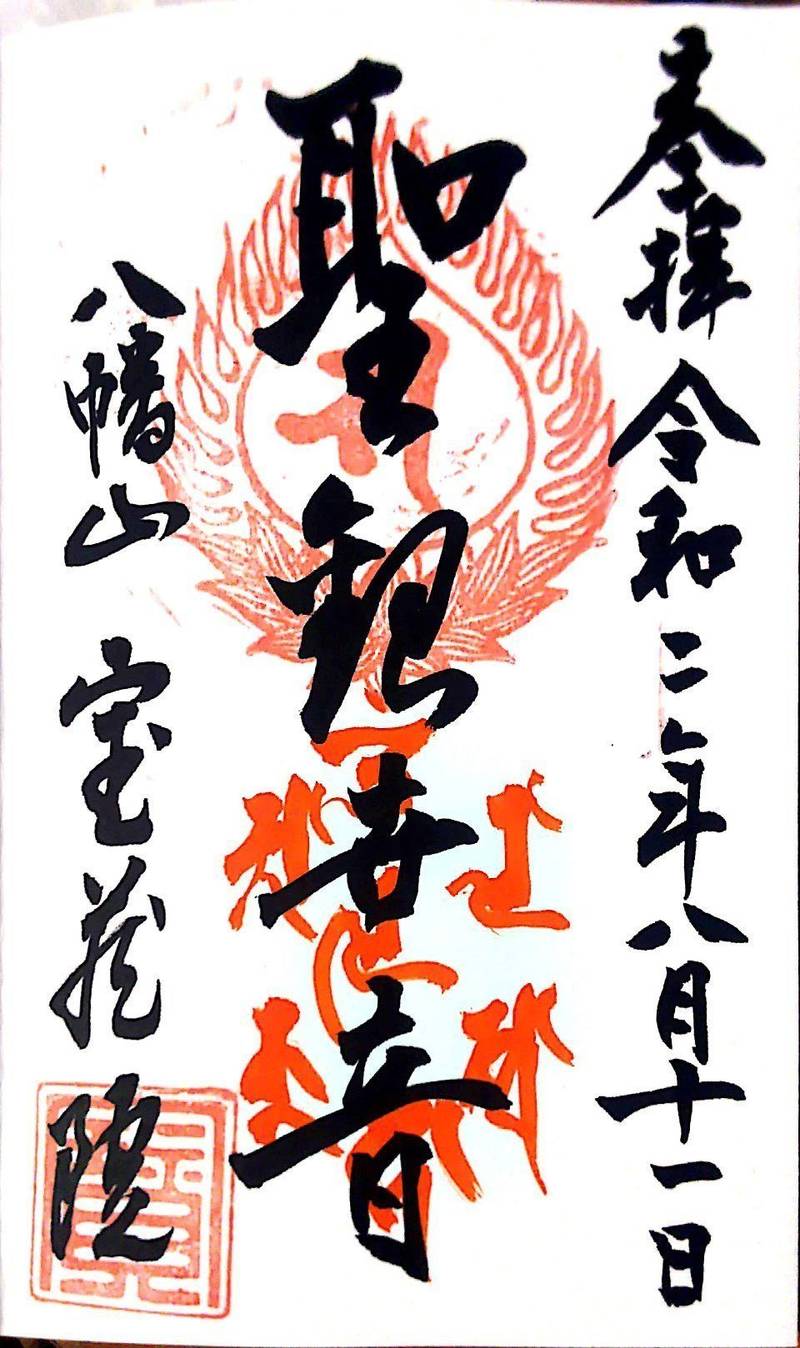 奉拝 令和二年八月十一日
聖観世音
八幡山 宝蔵院